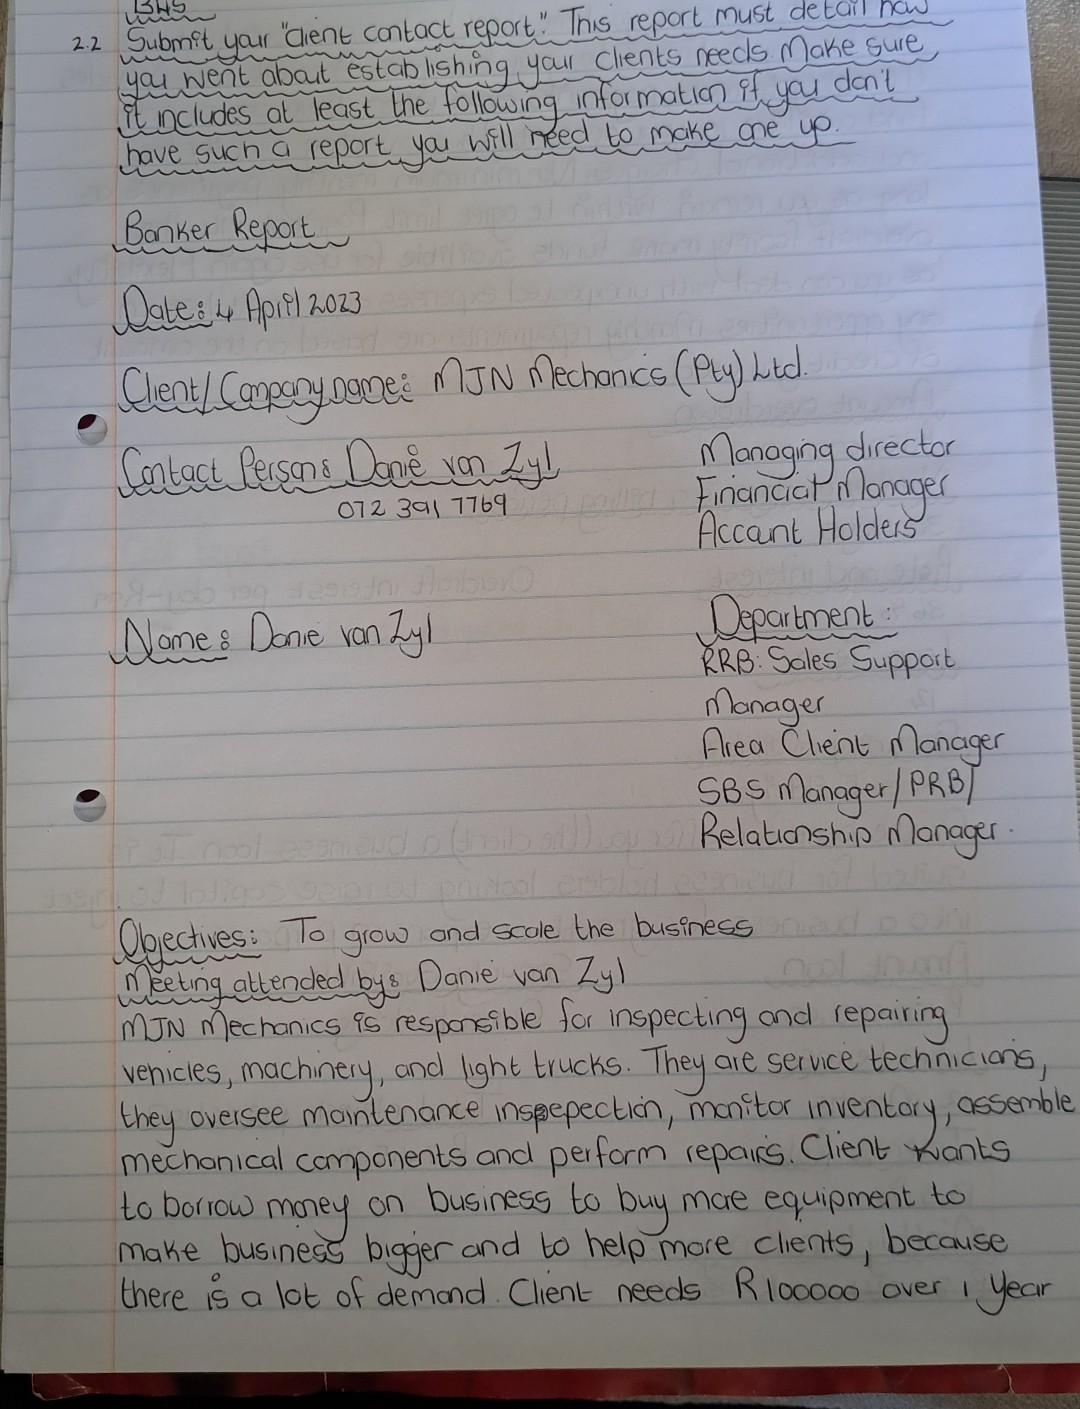 BHS
2.2 Submit your "client contact report." This report must detail how
you went about establishing your clients needs. Make sure
it includes at least the following information if you don't
have such a report, you will need to make one up.
Banker Report
Date: 4 April 2023
Client/Company name: MJN Mechanics (Pty) Ltd.
Contact Person: Danie van Zyl
072 391 7769
Managing director
Financial Manager
Account Holders
Name: Danie van Zyl
Department:
RRB: Sales Support
Manager
Area Client Manager
SBS Manager/PRB/
Relationship Manager.
Objectives: To grow and scale the business
Meeting attended by: Danie van Zyl
MJN Mechanics is responsible for inspecting and repairing
vehicles, machinery, and light trucks. They are service technicians,
they oversee maintenance inspepection, monitor inventory, assemble
mechanical components and perform repairs. Client wants
to borrow money on business to buy more equipment to
make business bigger and to help more clients, because
there is a lot of demand. Client needs R100000 over 1 year